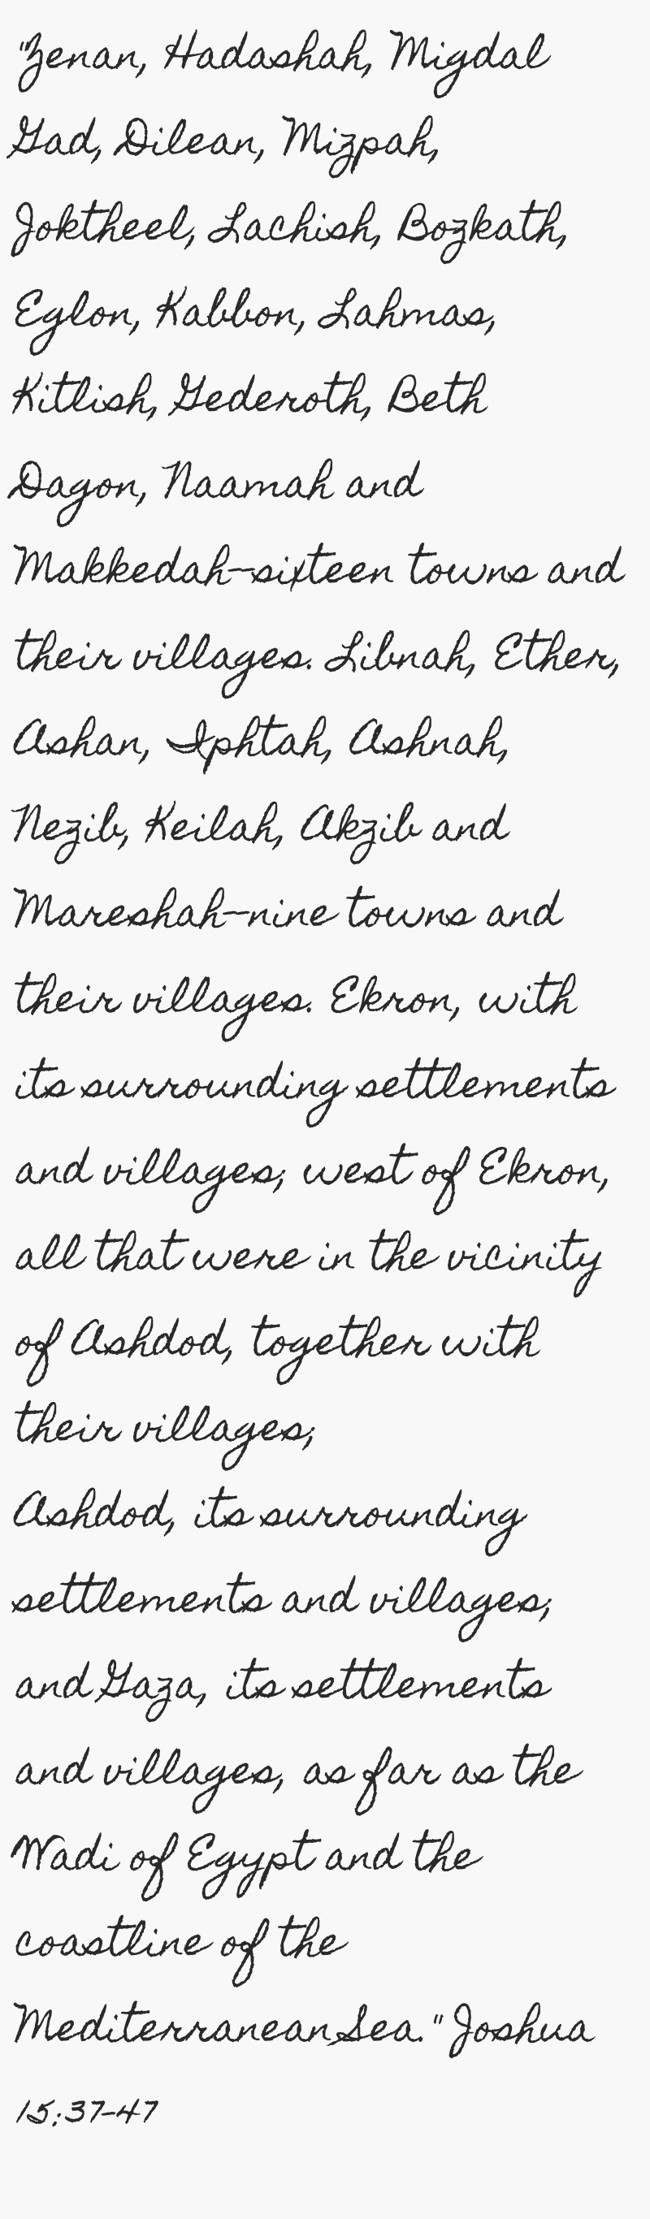 "Zenan, Hadashah, Migdal
Gad, Dilean, Mizpah,
Joktheel, Lachish, Bozkath,
Eglon, Kabbon, Lahmas,
Kitlish, Gederoth, Beth
Dagon, Naamah and
Makkedah—sixteen towns and
their villages. Libnah, Ether,
Ashan, Iphtah, Ashnah,
Nezib, Keilah, Akzib and
Mareshah—nine towns and
their villages. Ekron, with
its surrounding settlements
and villages; west of Ekron,
all that were in the vicinity
of Ashdod, together with
their villages;
Ashdod, its surrounding
settlements and villages;
and Gaza, its settlements
and villages, as far as the
Wadi of Egypt and the
coastline of the
Mediterranean Sea." Joshua
15:37-47